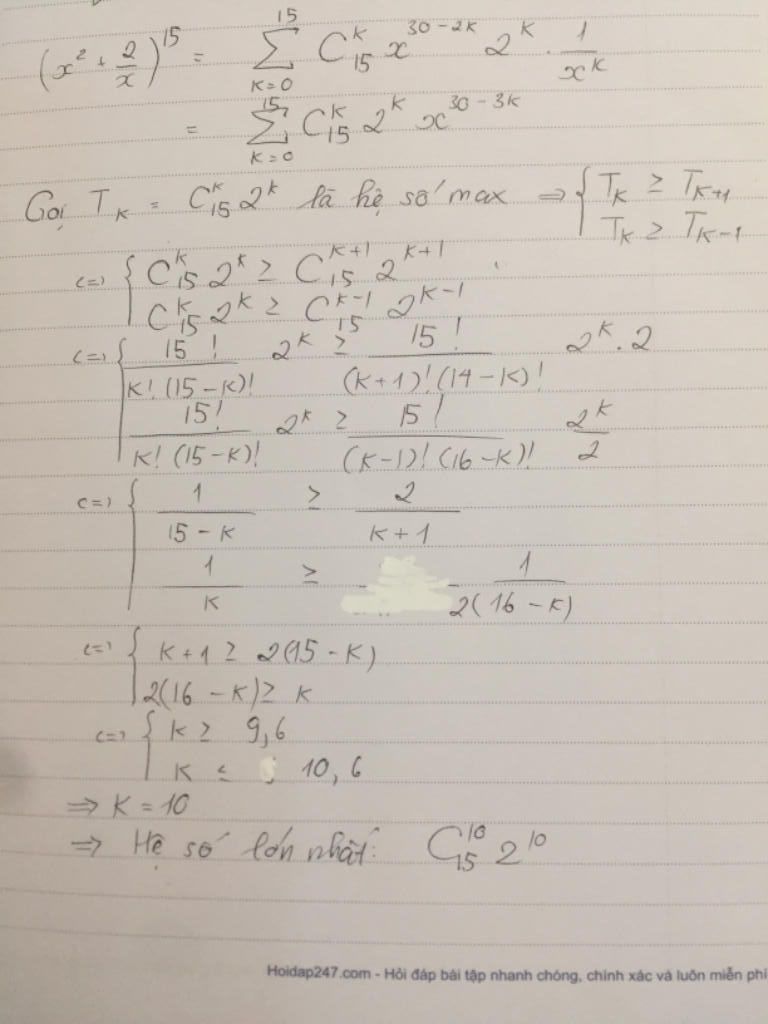 (x² + 2/x)^15 = ∑_{k=0}^{15} C_15^k x^{30-2k} 2^k · 1/x^k
= ∑_{k=0}^{15} C_15^k 2^k x^{30-3k}
Gọi T_k = C_15^k 2^k là hệ số max ⇒ { T_k ≥ T_{k+1}
T_k ≥ T_{k-1}
<=> { C_15^k 2^k ≥ C_15^{k+1} 2^{k+1}
C_15^k 2^k ≥ C_15^{k-1} 2^{k-1}
<=> { 15!/(k!(15-k)!) 2^k ≥ 15!/((k+1)!(14-k)!) 2^k . 2
15!/(k!(15-k)!) 2^k ≥ 15!/((k-1)!(16-k)!) 2^k/2
<=> { 1/(15-k) ≥ 2/(k+1)
1/k ≥ 1/(2(16-k))
<=> { k+1 ≥ 2(15-k)
2(16-k) ≥ k
<=> { k ≥ 9,6
k ≤ 10,6
⇒ k = 10
⇒ Hệ số lớn nhất: C_15^10 2^10
Hoidap247.com - Hỏi đáp bài tập nhanh chóng, chính xác và luôn miễn phí